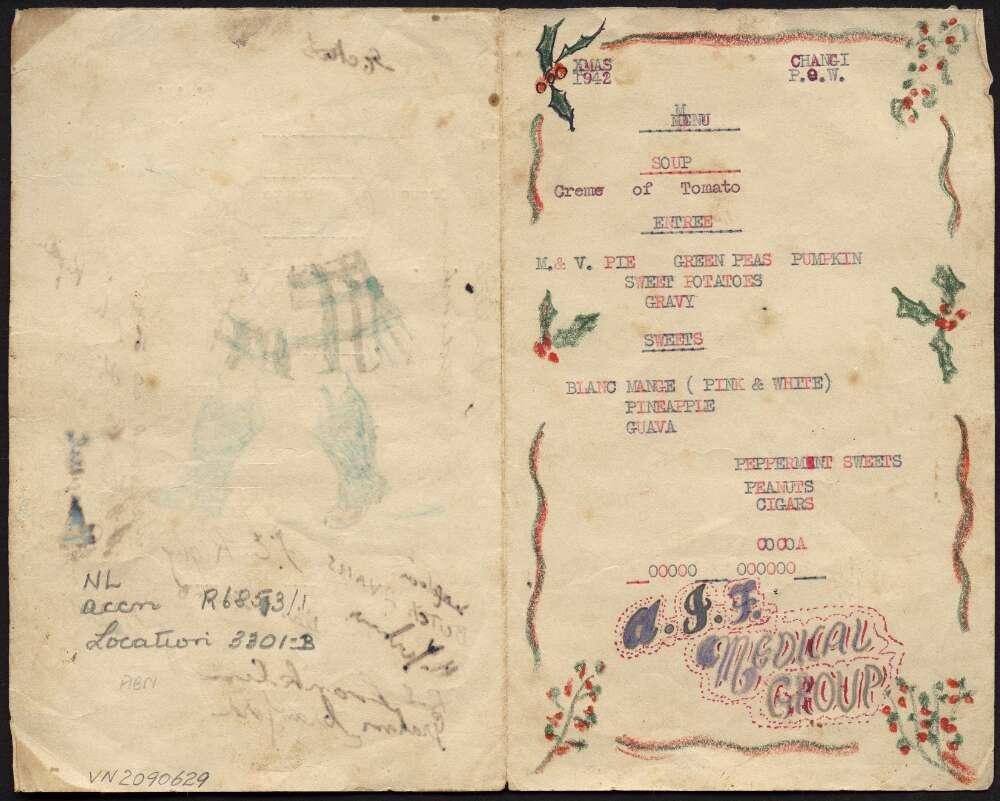 NL
accn R6853/1
Location 3301-B
ABN
VN2090629
XMAS
1942
CHANGI
P.O.W.
MENU
SOUP
Creme of Tomato
ENTREE
M.& V. PIE GREEN PEAS PUMPKIN
SWEET POTATOES
GRAVY
SWEETS
BLANC MANGE ( PINK & WHITE)
PINEAPPLE
GUAVA
PEPPERMINT SWEETS
PEANUTS
CIGARS
COCOA
__OOOOO___OOOOOO___
A.I.F.
MEDICAL
GROUP